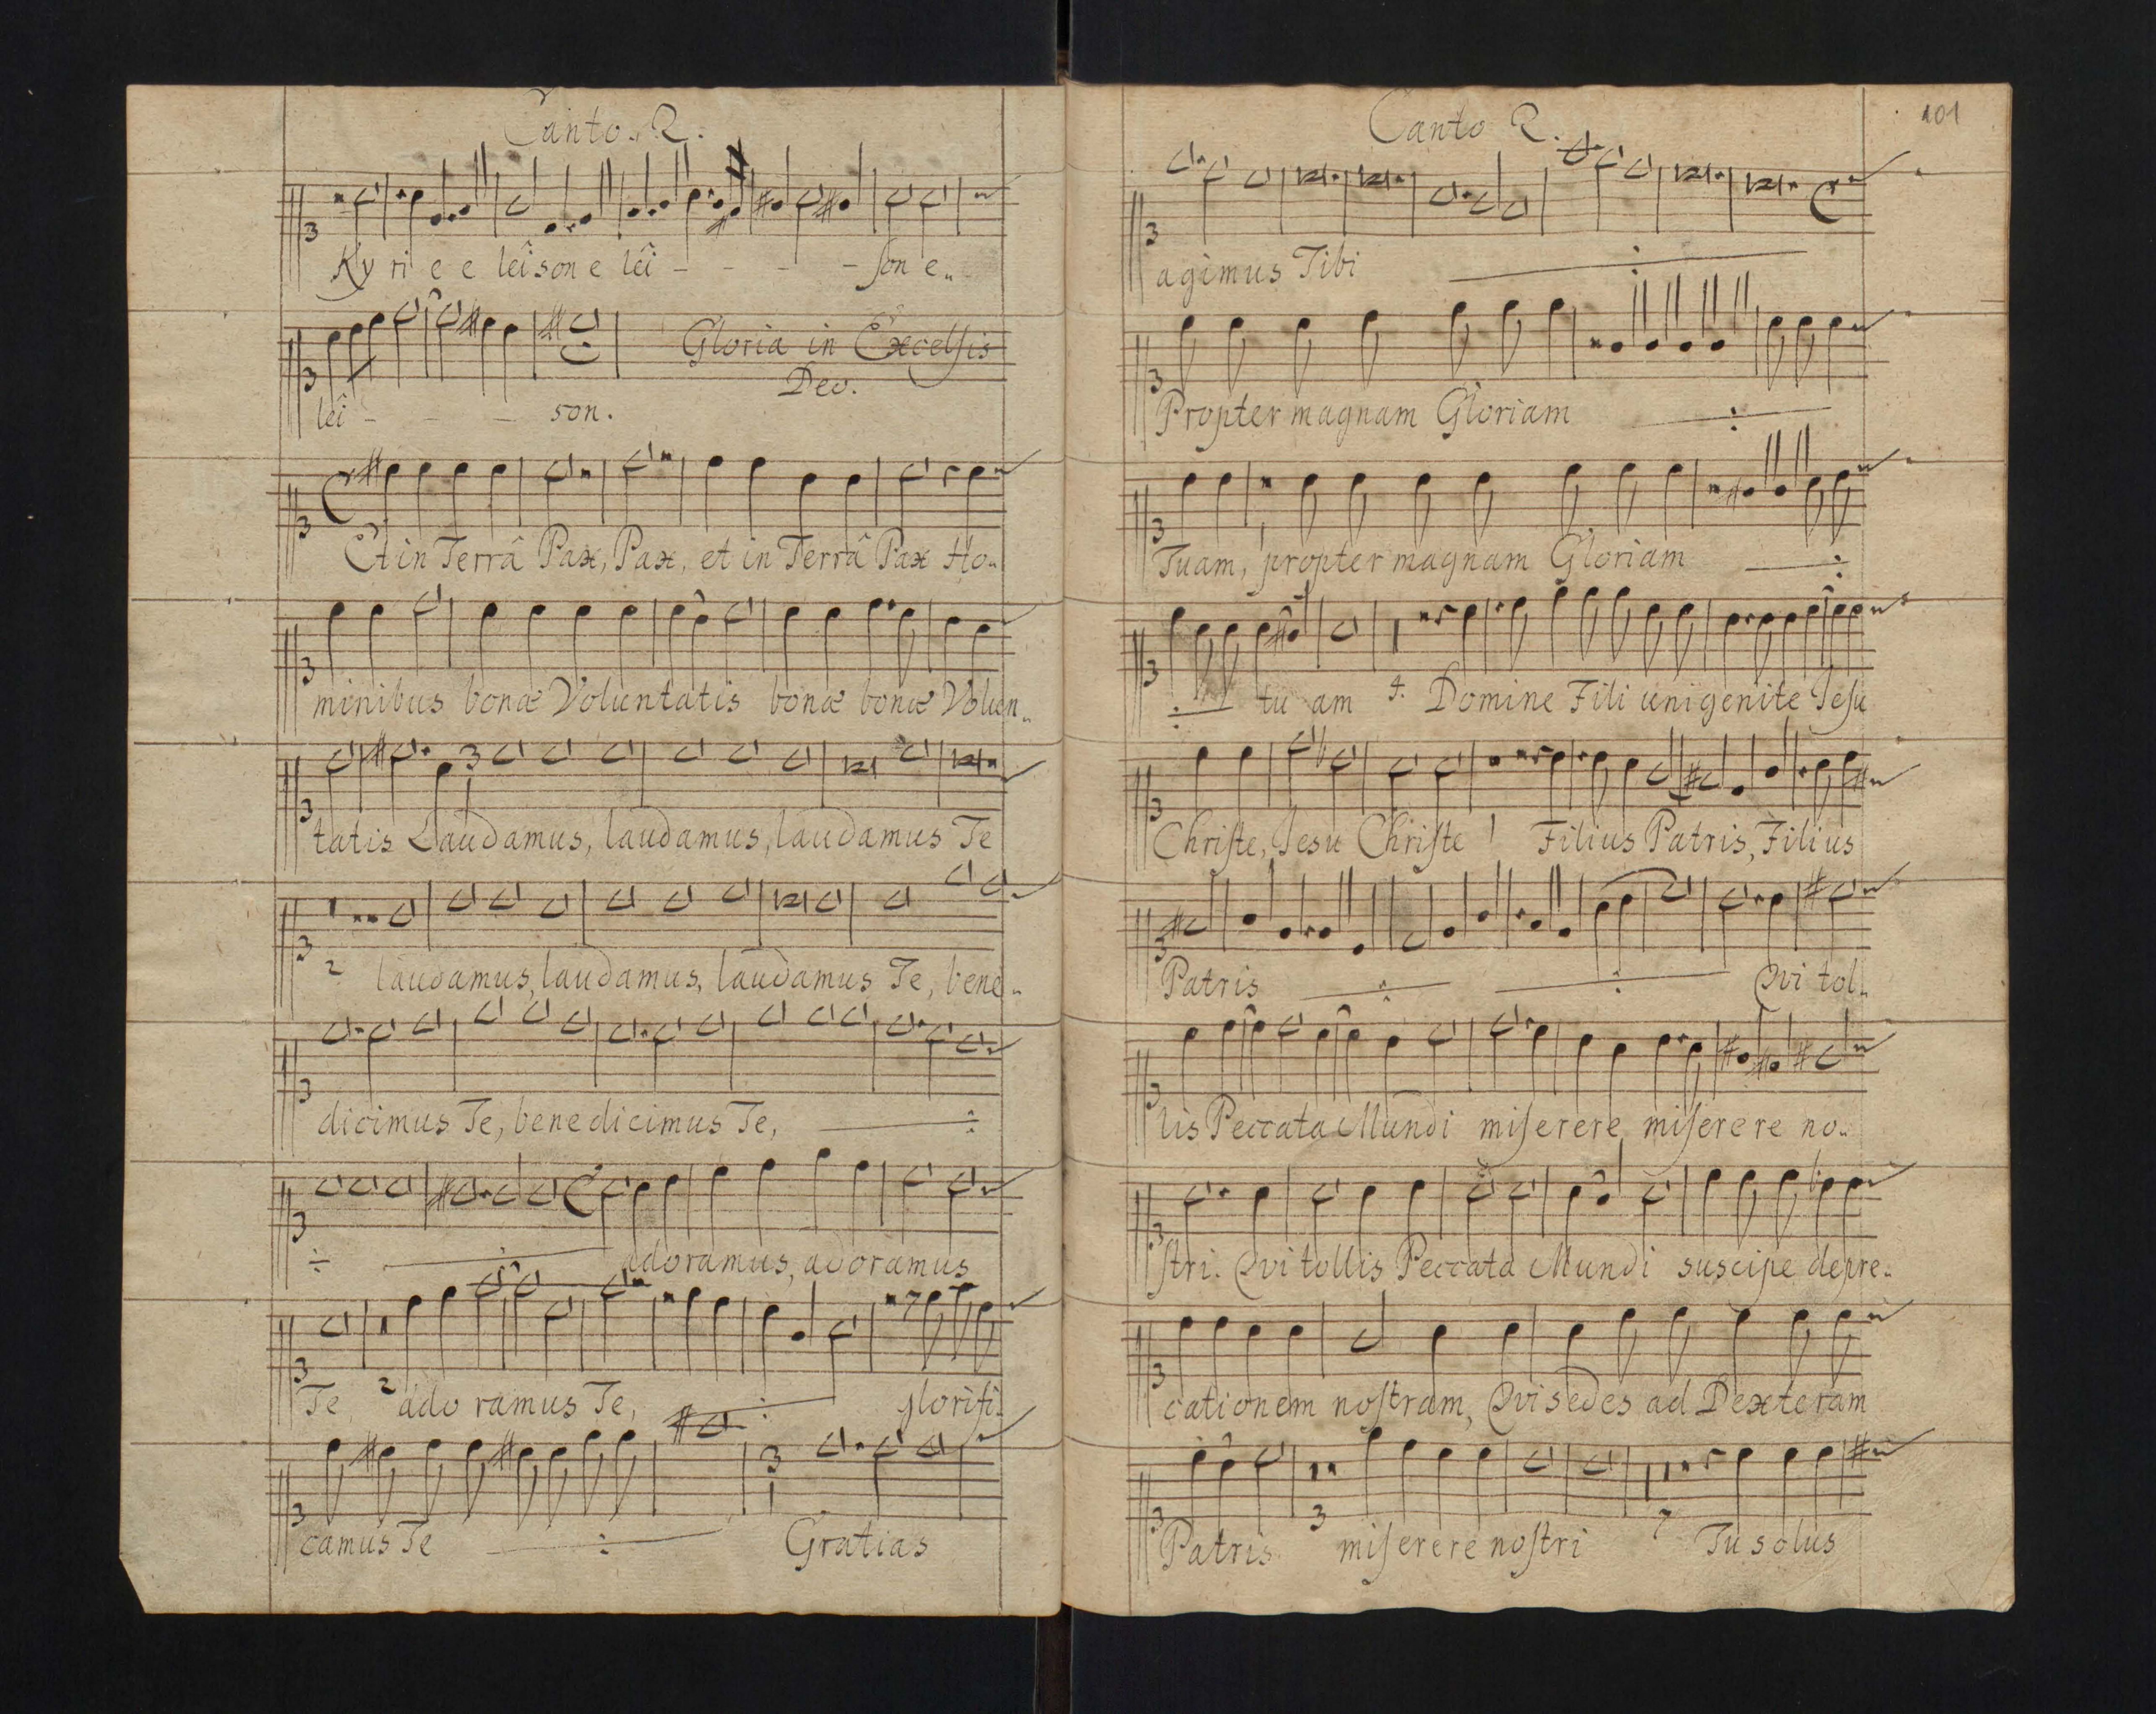 Canto. 2.
Ky ri e e leîson e leî - - - - son e..
Gloria in Excelsis
Deo.
leî - - - son.
Et in Terrâ Pax, Pax, et in Terrâ Pax Ho..
minibus bonæ Voluntatis bonæ bonæ Volun..
tatis Laudamus, laudamus, laudamus Te
2 laudamus, laudamus, laudamus Te, bene..
dicimus Te, benedicimus Te,
adoramus, adoramus
Te, 2 ado ramus Te, glorifi..
camus Te Gratias
101
Canto 2.
agimus Tibi
Propter magnam Gloriam
Tuam, propter magnam Gloriam
tu am 4. Domine Fili unigenite Jesu
Christe, Jesu Christe 1 Filius Patris, Filius
Patris Qvi tol..
lis Peccata Mundi miserere miserere no..
stri. Qvi tollis Peccata Mundi suscipe depre..
cationem nostram, Qvi sedes ad Dexteram
Patris 3 miserere nostri 7 Tu solus